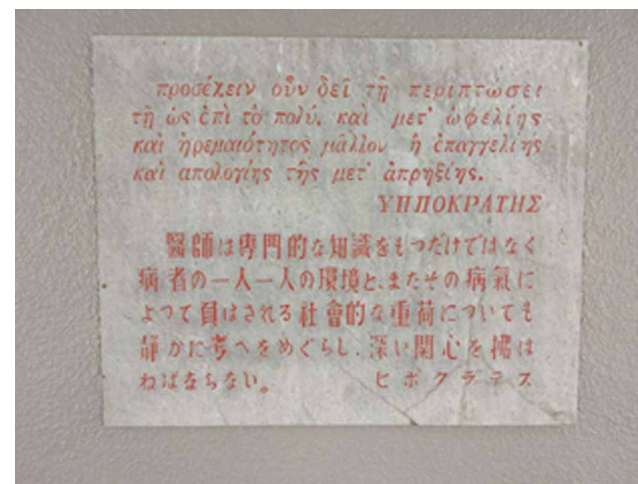 προσέχειν οὖν δεῖ τῇ περιπτώσει
τῇ ὡς ἐπὶ τὸ πολύ, καὶ μετ' ὠφελίης
καὶ ἠρεμαιότητος μᾶλλον ἢ ἐπαγγελίης
καὶ απολογίης τῆς μετ' ἀπρηξίης.
ΥΠΠΟΚΡΑΤΗΣ
醫師は專門的な知識をもつだけではなく
病者の一人一人の環境と、またその病氣に
よつて負はされる社會的な重荷についても
靜かに考へをめぐらし、深い関心を拂は
ねばならない。 ヒポクラテス